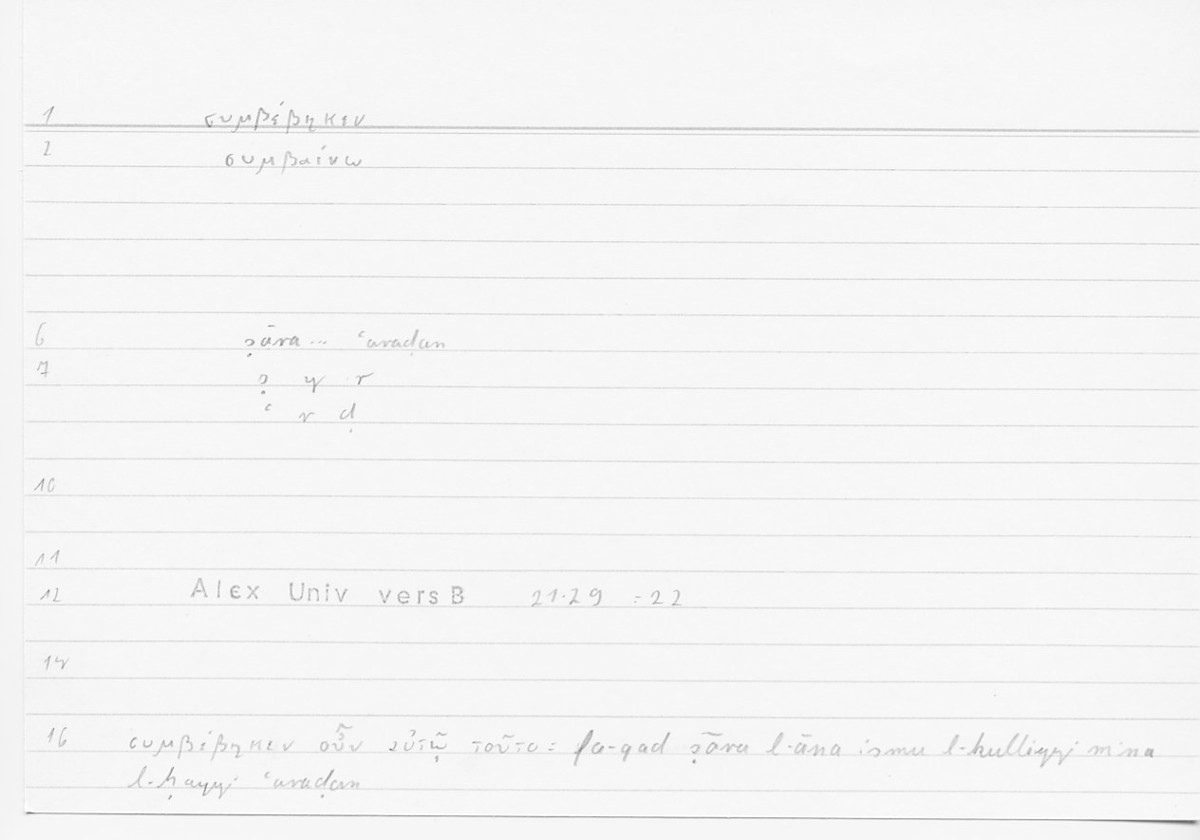 1 συμβέβηκεν
2 συμβαίνω
6 ṣāra... ʿaraḍan
7 ṣ y r
ʿ r ḍ
10
11
12 Alex Univ vers B 21.29 = 22
14
16 συμβέβηκεν οὖν αὐτῷ τοῦτο = fa-qad ṣāra l-āna ismu l-kulliyyi mina
l-ḥayyi ʿaraḍan